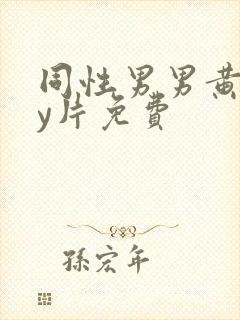 同性男男黄
y片免費
孫宏年